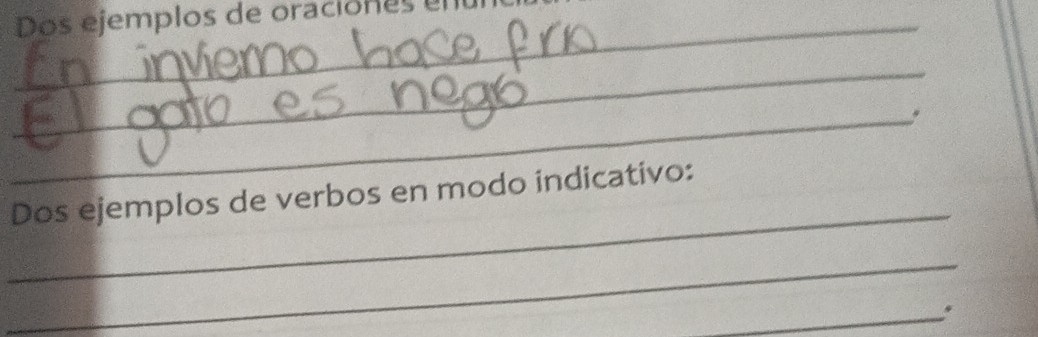 Dos ejemplos de oraciones
En invierno hace frio
El gato es negro
Dos ejemplos de verbos en modo indicativo: